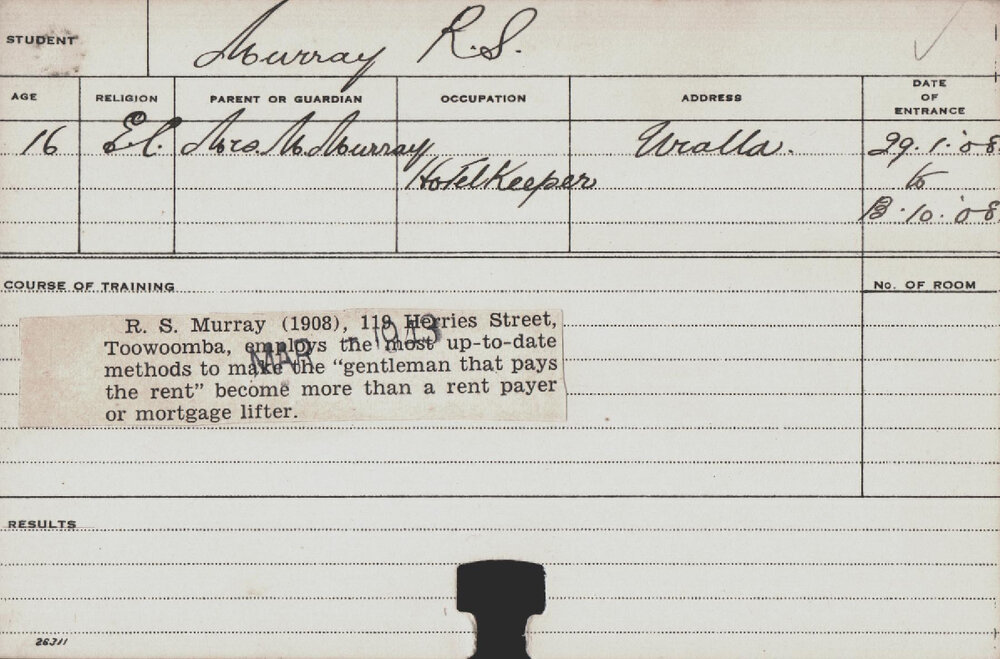 STUDENT Murray R.S.
AGE RELIGION PARENT OR GUARDIAN OCCUPATION ADDRESS DATE OF ENTRANCE
16 E.C. Mrs. M. Murray Uralla. 29.1.'08
HotelKeeper to
13.10.'08
COURSE OF TRAINING No. OF ROOM
R. S. Murray (1908), 119 Herries Street,
Toowoomba, employs the most up-to-date
methods to make the “gentleman that pays
the rent” become more than a rent payer
or mortgage lifter.
MAR - 1943
RESULTS
26311